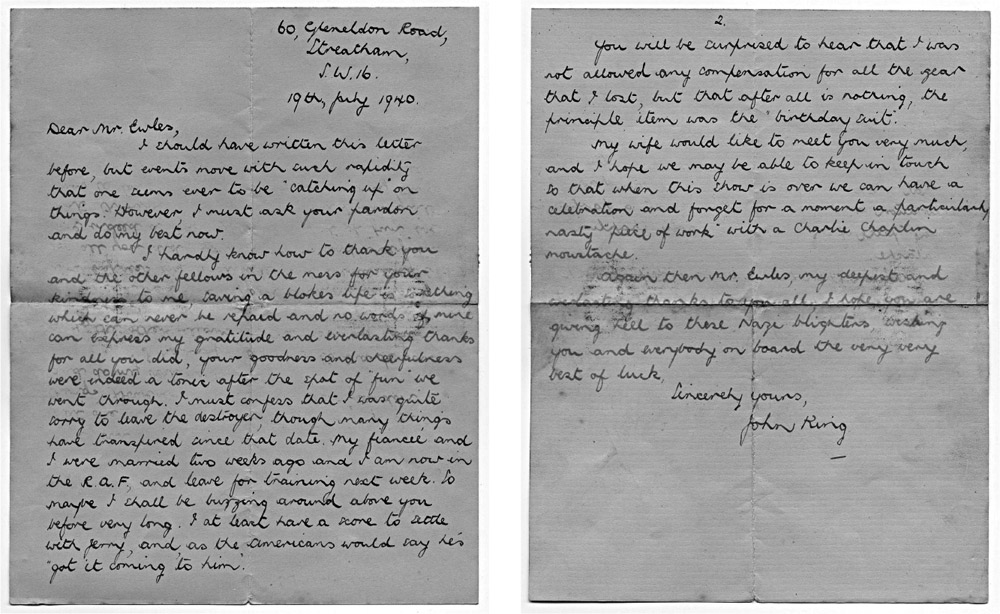 60, Gleneldon Road,
Streatham,
S.W.16.
19th, July 1940.
Dear Mr. Ewles,
I should have written this letter
before, but events move with such rapidity
that one seems ever to be "catching up" on
things. However I must ask your pardon
and do my best now.
I hardly know how to thank you
and the other fellows in the mess for your
kindness to me, saving a blokes life is something
which can never be repaid and no words of mine
can express my gratitude and everlasting thanks
for all you did, your goodness and cheerfulness
were indeed a tonic after the spot of "fun" we
went through. I must confess that I was quite
sorry to leave the destroyer, though many things
have transpired since that date. My fiancée and
I were married two weeks ago and I am now in
the R.A.F, and leave for training next week. So
maybe I shall be buzzing around above you
before very long. I at least have a score to settle
with Jerry, and, as the Americans would say he's
"got it coming to him."
2.
You will be surprised to hear that I was
not allowed any compensation for all the gear
that I lost, but that after all is nothing, the
principle item was the "birthday suit".
My wife would like to meet you very much,
and I hope we may be able to keep in touch
so that when this show is over we can have a
celebration and forget for a moment a particularly
nasty "piece of work" with a Charlie Chaplin
moustache.
Again then Mr. Ewles, my deepest and
everlasting thanks to you all. I hope you are
giving hell to these Naze blighters wishing
you and everybody on board the very very
best of luck,
Sincerely yours,
John King